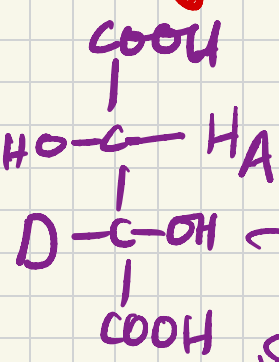 COOH
HO-C-HA
D-C-OH
COOH